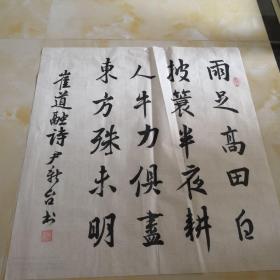 雨足高田白
披蓑半夜耕
人牛力俱盡
東方殊未明
崔道融诗尹新台书